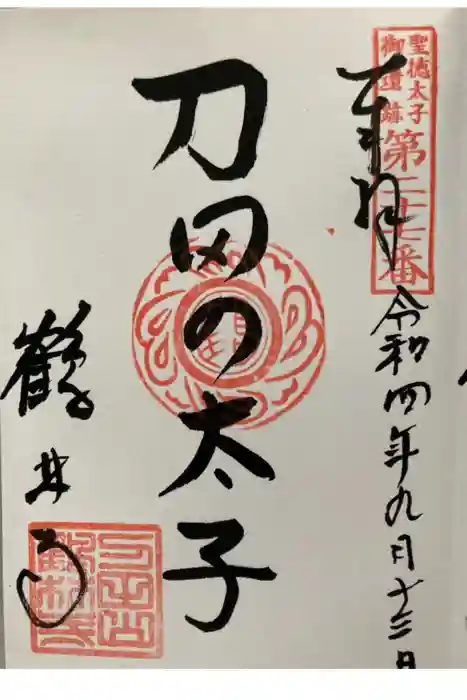 聖徳太子
御遺跡
第二十七番
奉拝
令和四年九月十三日
刀田の太子
鶴林寺
刀田山
鶴林寺